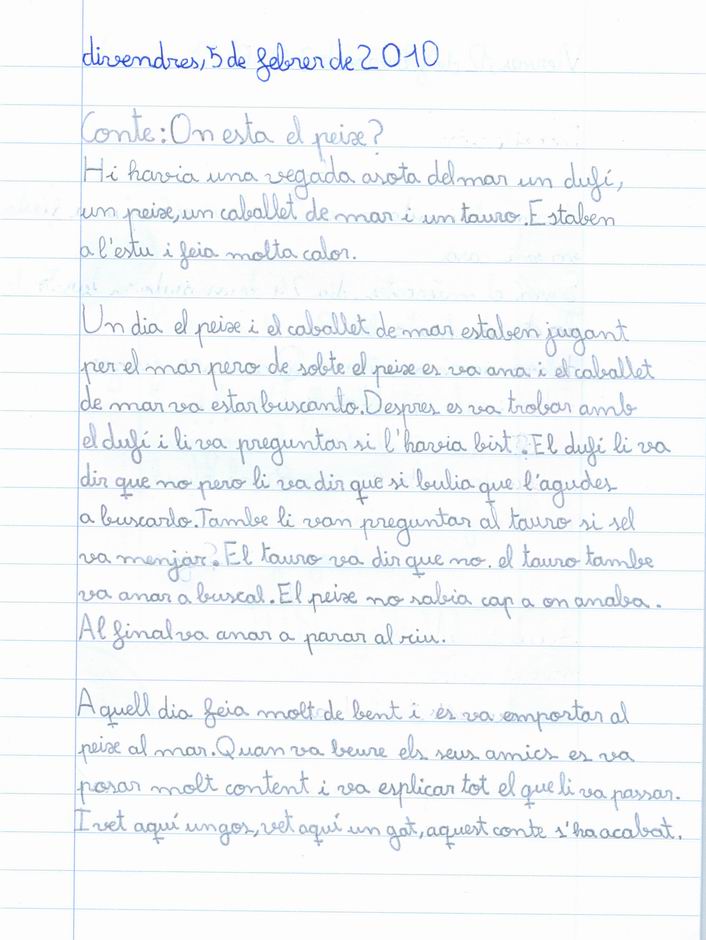 divendres, 5 de febrer de 2010
Conte: On esta el peixe?
Hi havia una vegada asota del mar un dufí,
un peixe, un caballet de mar i un tauro. Estaben
a l'estu i feia molta calor.
Un dia el peixe i el caballet de mar estaben jugant
per el mar pero de sobte el peixe es va ana i el caballet
de mar va estar buscanto. Despres es va trobar amb
el dufí i li va preguntar si l'havia bist. El dufí li va
dir que no pero li va dir que si bulia que l'agudes
a buscarlo. Tambe li van preguntar al tauro si sel
va menjar. El tauro va dir que no. el tauro tambe
va anar a buscal. El peixe no sabia cap a on anaba.
Al final va anar a parar al riu.
Aquell dia feia molt de bent i es va emportar al
peixe al mar. Quan va beure els seus amics es va
posar molt content i va esplicar tot el que li va passar.
I vet aquí un gos, vet aquí un gat, aquest conte s'ha acabat.